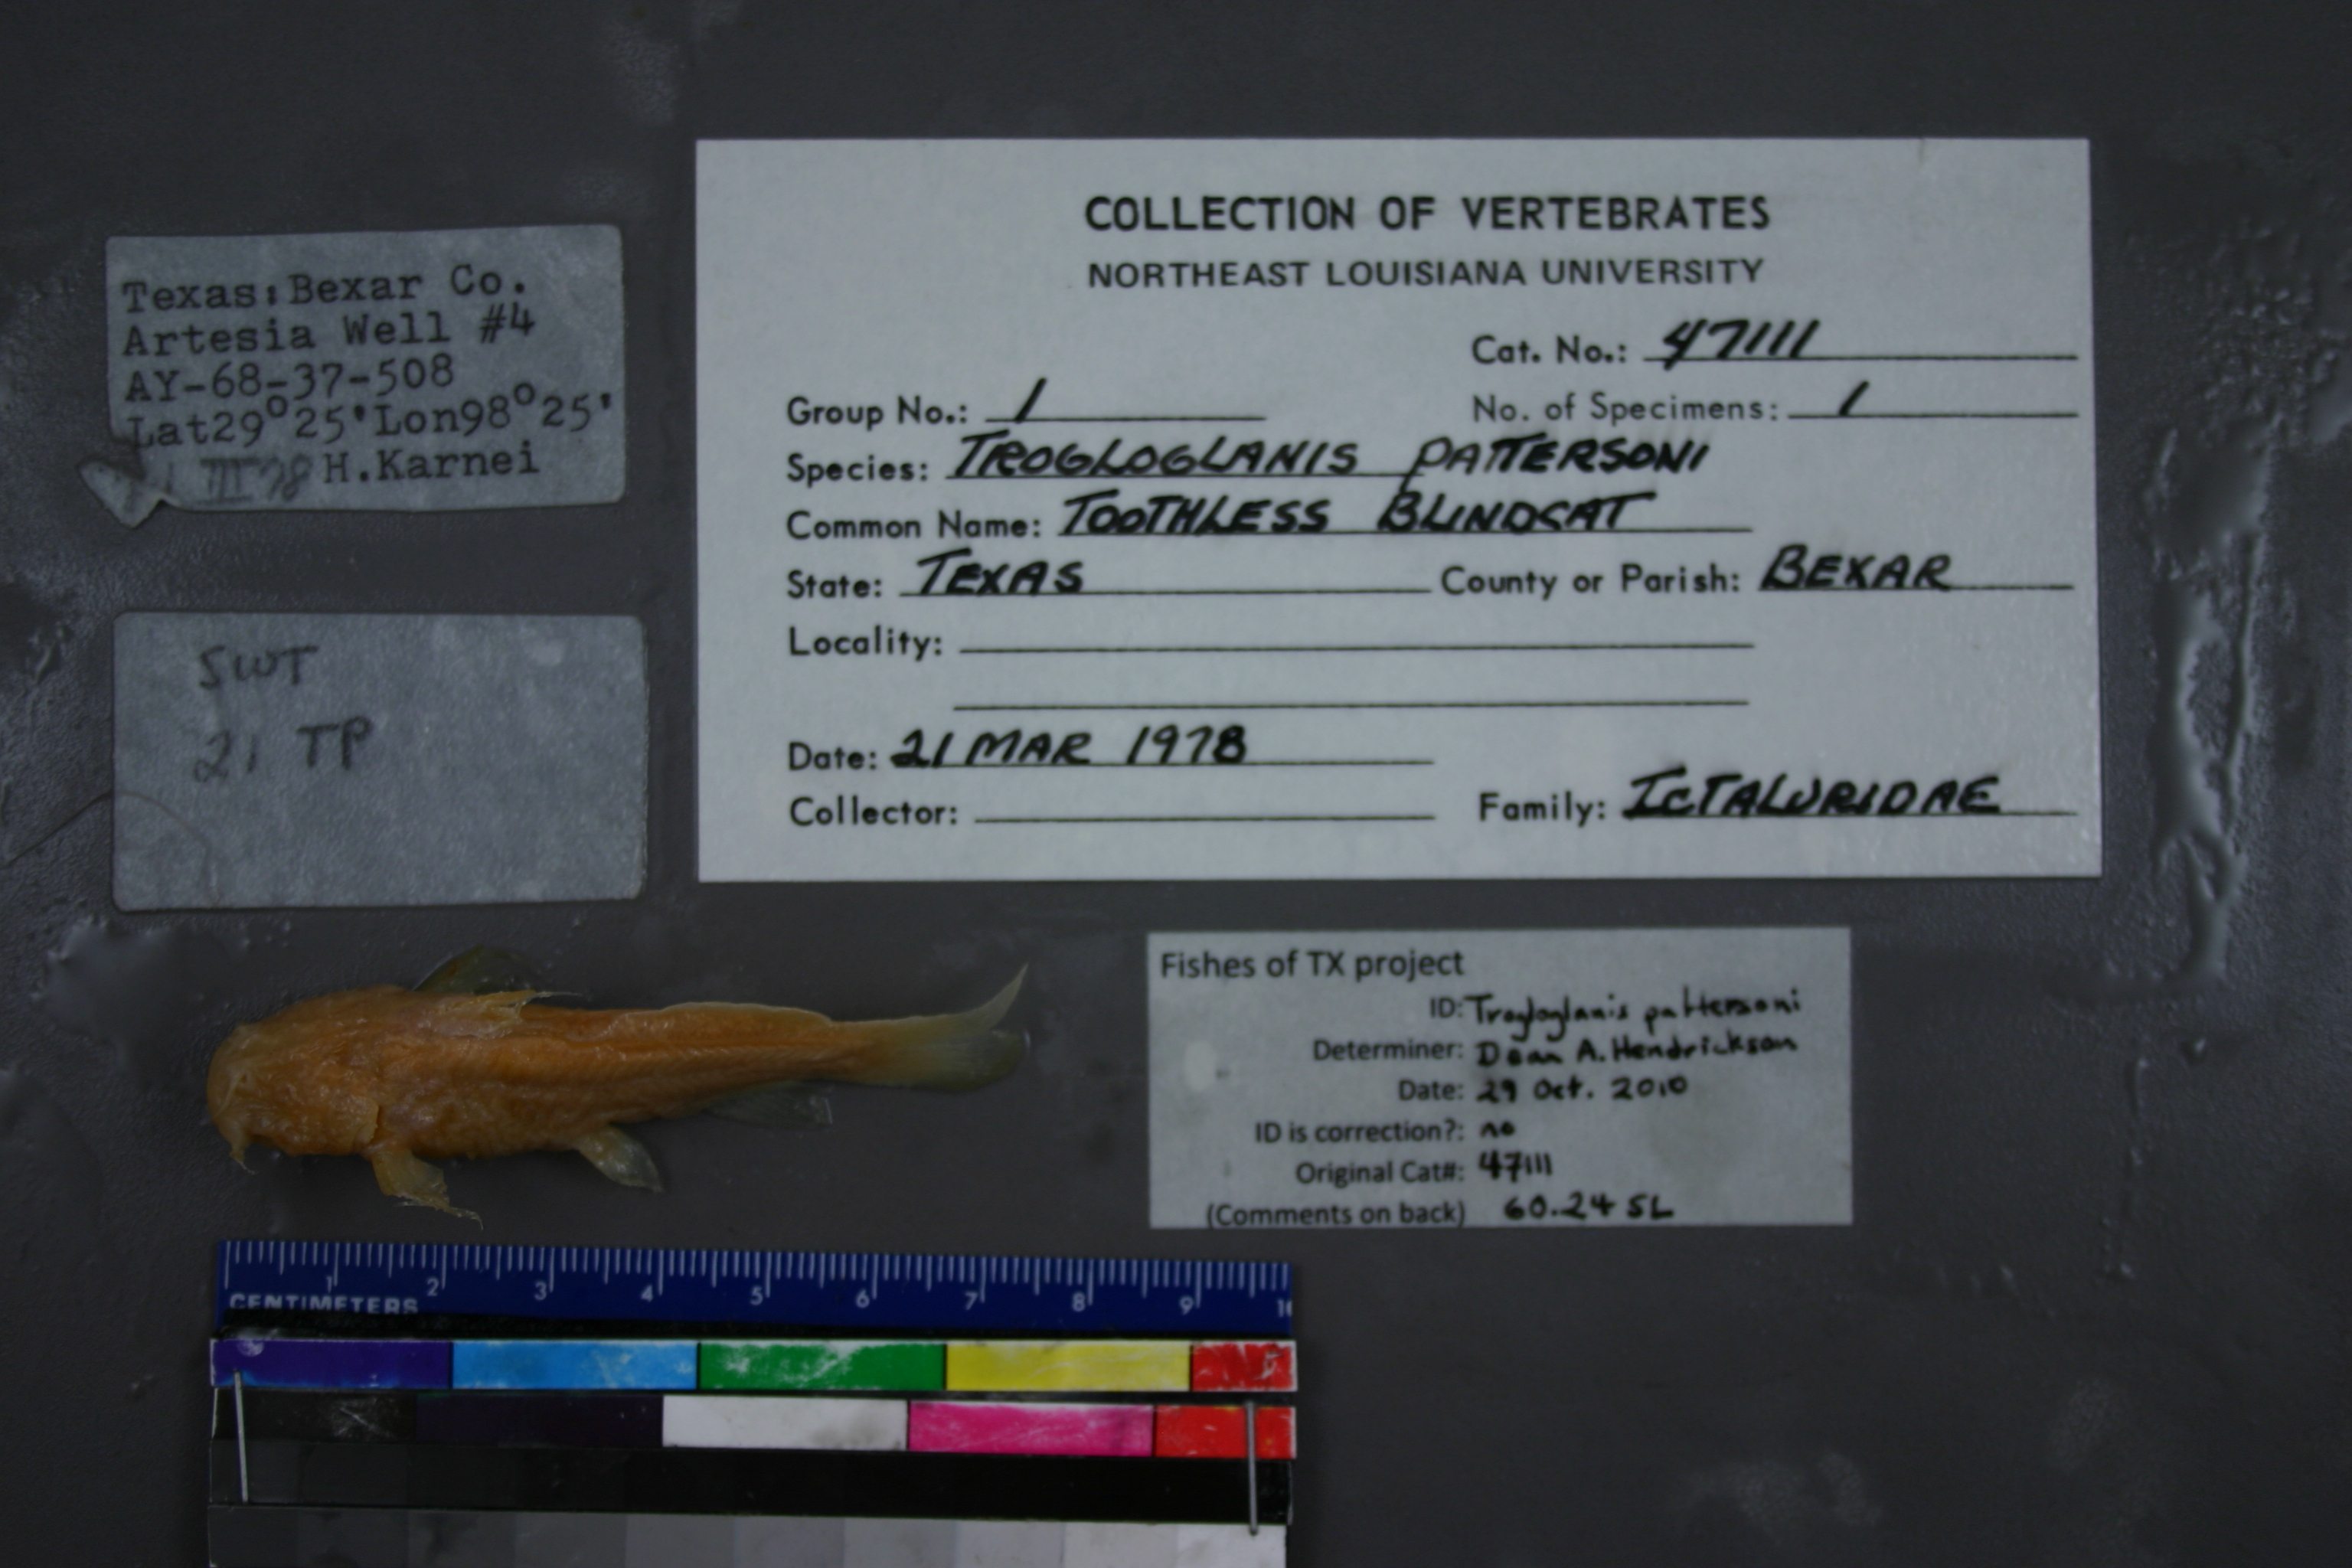 Texas:Bexar Co.
Artesia Well #4
AY-68-37-508
Lat29°25'Lon98°25'
III 78 H.Karnei
SWT
21 TP
COLLECTION OF VERTEBRATES
NORTHEAST LOUISIANA UNIVERSITY
Cat. No.: 47111
Group No.: 1 No. of Specimens: 1
Species: TROGLOGLANIS PATTERSONI
Common Name: TOOTHLESS BLINDCAT
State: TEXAS County or Parish: BEXAR
Locality:
Date: 21 MAR 1978
Collector: Family: ICTALURIDAE
Fishes of TX project
ID: Trogloglanis pattersoni
Determiner: Dean A. Hendrickson
Date: 29 Oct. 2010
ID is correction?: no
Original Cat#: 47111
(Comments on back) 60.24 SL
1 2 3 4 5 6 7 8 9
CENTIMETERS